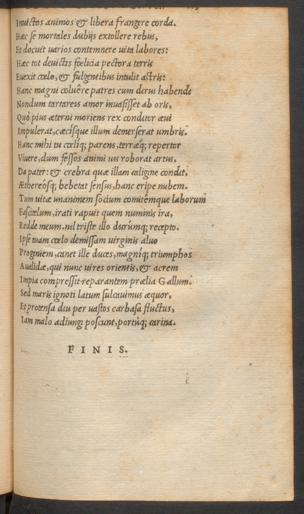 Inuictos animos & libera frangere corda.
Hæc se mortales dubijs extollere rebus,
Et docuit uarios contemnere uita labores:
Hæc tot deuictis fœlicia pectora terris
Euexit cœlo, & fulgentibus intulit astris:
Hanc magni coluêre patres cum derus habende
Nondum tartareis amor inuasisset ab oris,
Quò pius æterni moriens rex conditor æui
Impulerat, cæcisque illum demerserat umbris.
Hanc mihi tu cœliq; parens, terræq; repertor
Viuere, dum fessos animi uis roborat artus,
Da pater: & crebra quæ illam caligine condit,
Æthereosq; hebetat sensus, hanc eripe nubem.
Tam uitæ unanimem socium comitemque laborum
Fasciculum, irati rapuit quem numinis ira,
Redde meum. nil triste illo durumq; recepto.
Ipse tuam cœlo demissam uirginis aluo
Progeniem canet ille duces, magniq; triumphos
Aualidæ, qui nunc uires orientis, & acrem
Impia compressit reparantem prælia Gallum.
Sed maris ignoti latum sulcauimus æquor,
Et protensa diu per uastos carbasa fluctus,
Iam malo adiungi poscunt, portumq; carina.
FINIS.